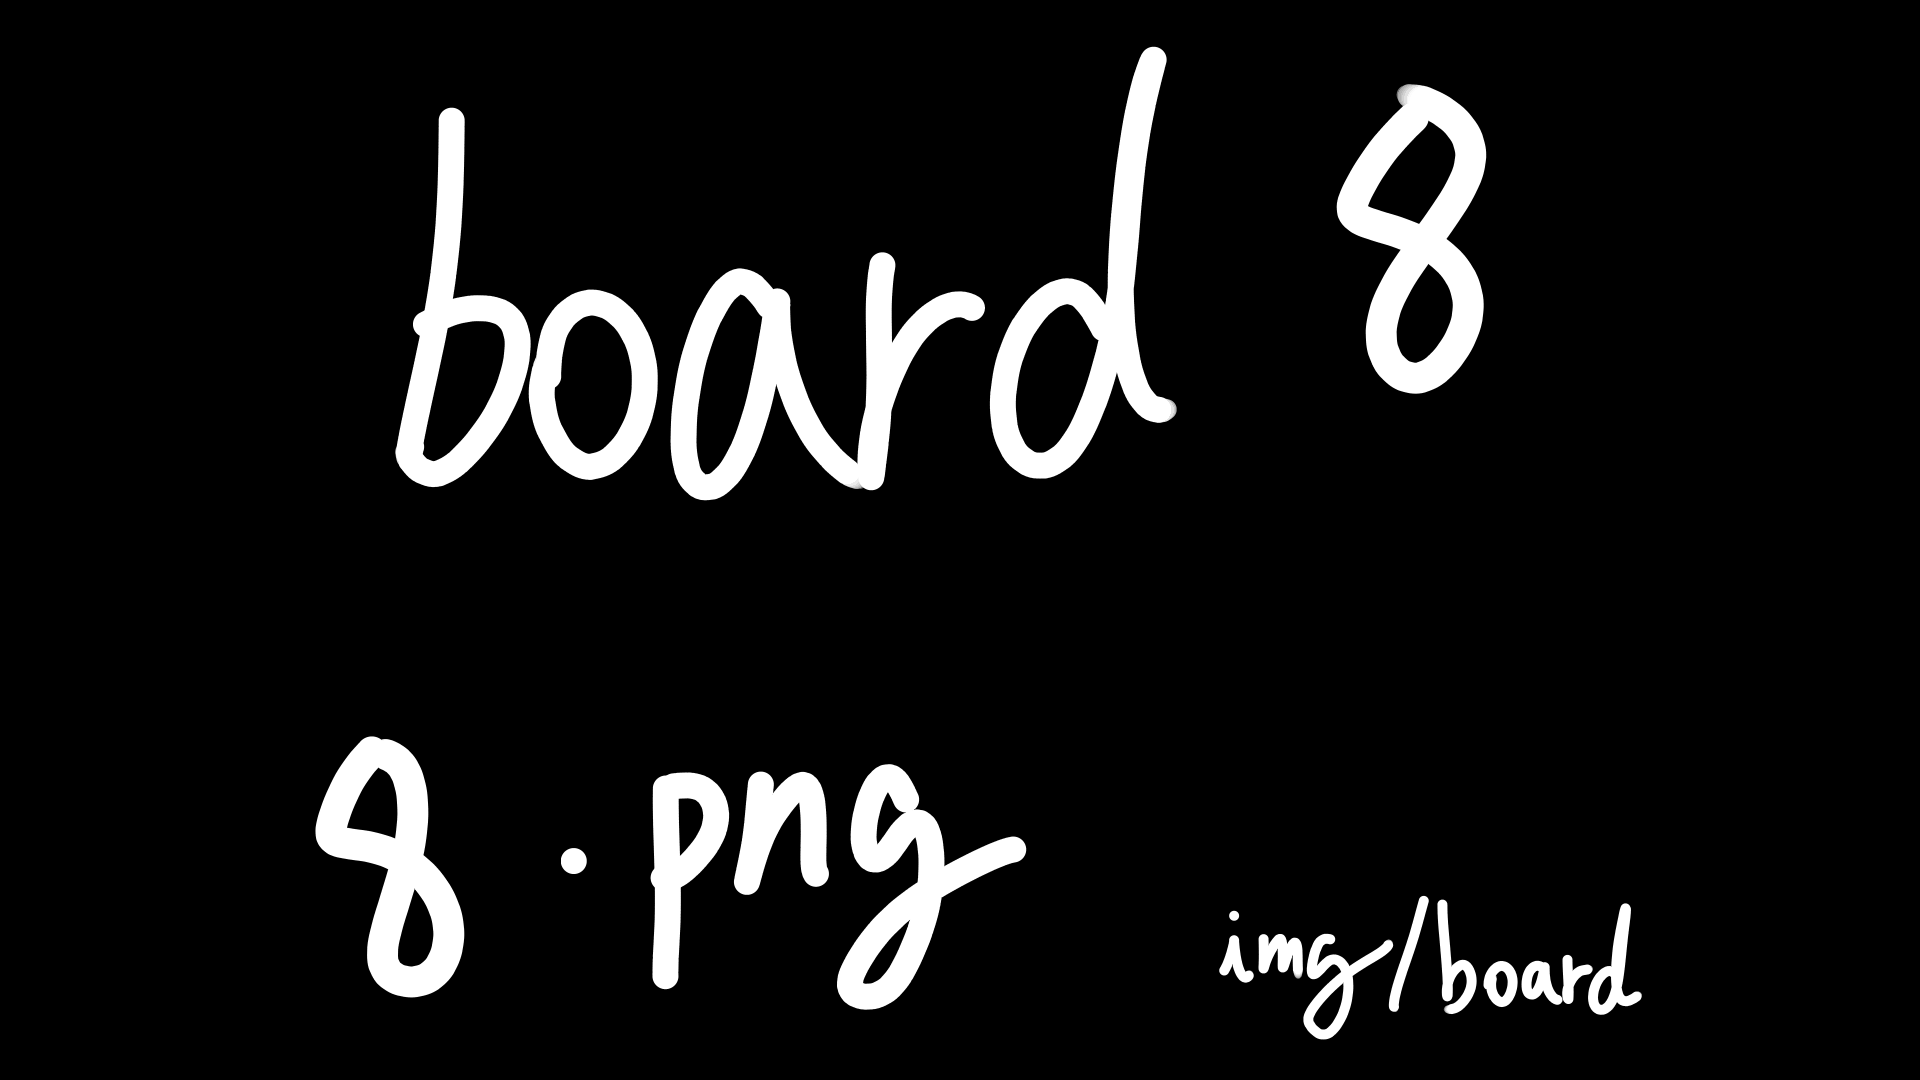 board 8
8.png
img/board